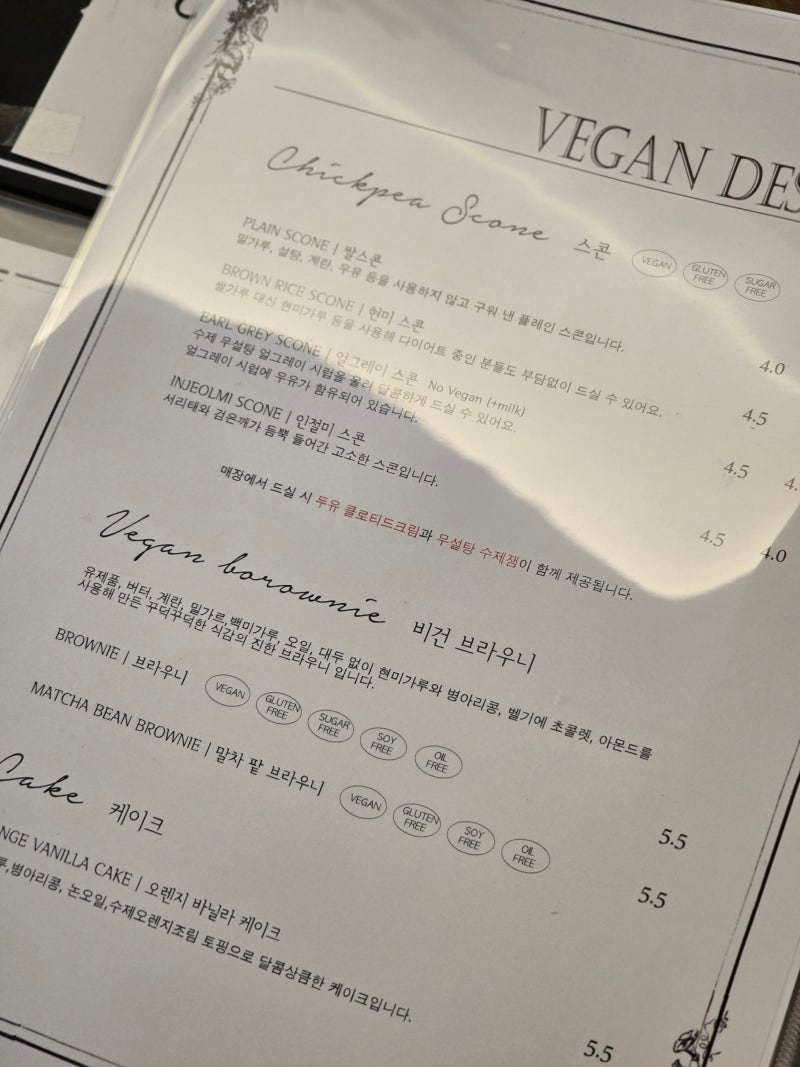 VEGAN DES
Chickpea Scone 스콘 VEGAN GLUTEN FREE SUGAR FREE
PLAIN SCONE | 쌀스콘
밀가루, 설탕, 계란, 우유 등을 사용하지 않고 구워 낸 플레인 스콘입니다.
4.0
BROWN RICE SCONE | 현미 스콘
쌀가루 대신 현미가루 등을 사용해 다이어트 중인 분들도 부담없이 드실 수 있어요.
4.5
EARL GREY SCONE | 얼그레이 스콘 No Vegan (+milk)
수제 무설탕 얼그레이 시럽을 올려 달콤하게 드실 수 있어요.
얼그레이 시럽에 우유가 함유되어 있습니다.
4.5 4.
INJEOLMI SCONE | 인절미 스콘
서리태와 검은깨가 듬뿍 들어간 고소한 스콘입니다.
4.5 4.0
매장에서 드실 시 두유 클로티드크림과 무설탕 수제잼이 함께 제공됩니다.
Vegan borownie 비건 브라우니
유제품, 버터, 계란, 밀가르,백미가루, 오일, 대두 없이 현미가루와 병아리콩, 벨기에 초콜렛, 아몬드를
사용해 만든 꾸덕꾸덕한 식감의 진한 브라우니 입니다.
BROWNIE | 브라우니 VEGAN GLUTEN FREE SUGAR FREE SOY FREE OIL FREE
5.5
MATCHA BEAN BROWNIE | 말차 팥 브라우니 VEGAN GLUTEN FREE SOY FREE OIL FREE
5.5
Cake 케이크
NGE VANILLA CAKE | 오렌지 바닐라 케이크
루,병아리콩, 논오일,수제오렌지조림 토핑으로 달콤상큼한 케이크입니다.
5.5